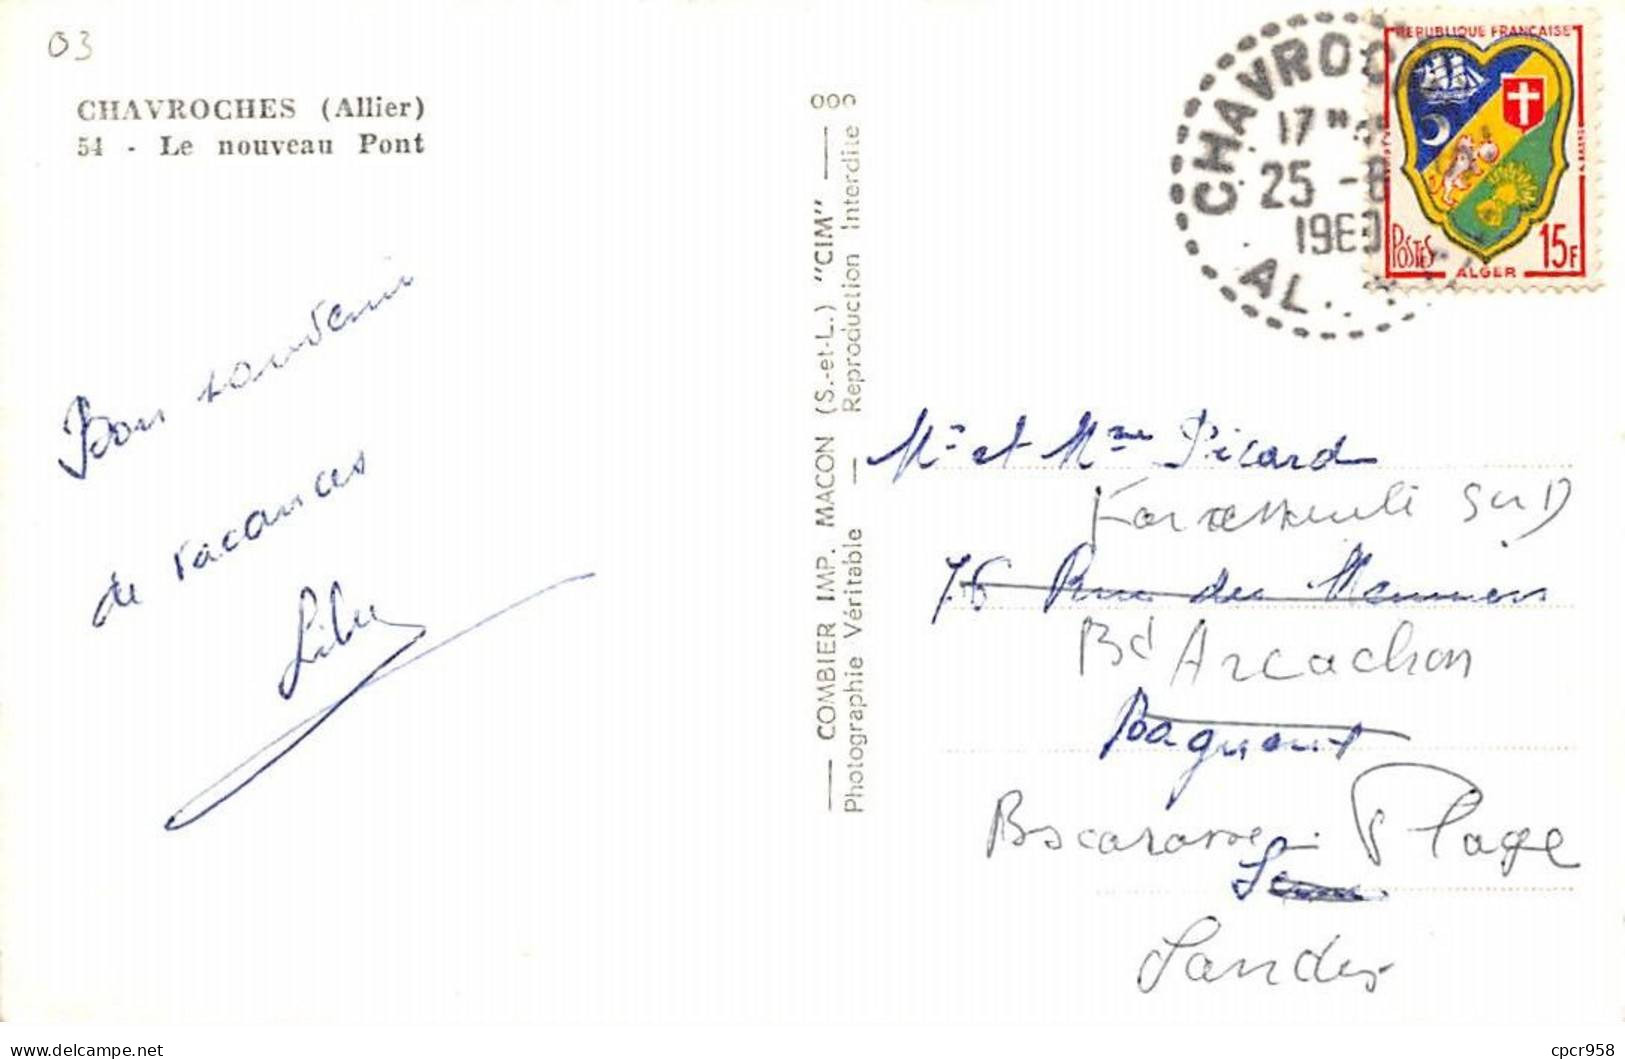 03
CHAVROCHES (Allier)
54 - Le nouveau Pont
Bon souvenir
de vacances
COMBIER IMP. MACON (S.-et-L.) "CIM"
Photographie Véritable — Reproduction Interdite
CHAVROC
17
25 -8
1960
AL
REPUBLIQUE FRANÇAISE
POSTES
ALGER
15F
Mr et Mme Picard
SUD
76 Rue des
Bd Arcachon
Bagneux
Biscarosse Plage
Seine
Landes
delcampe.net
cpcr958